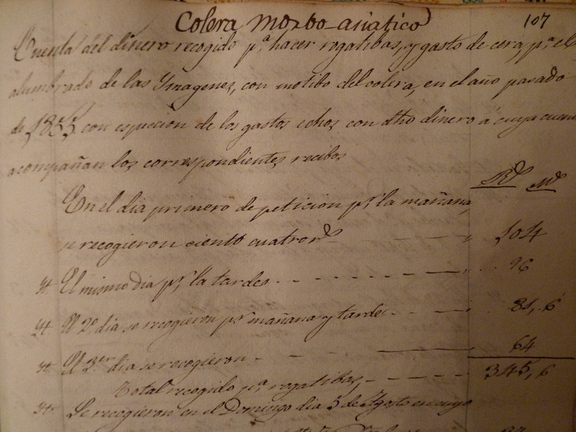 Colera morbo-asiatico 107
Cuenta del dinero recogido pª hacer rogatibas, y gasto de cera pª el
alumbrado de las Ymagenes, con motibo del colera, en el año pasado
de 1855 con espresion de los gastos echos con dho dinero á cuya cuenta
acompañan los correspondientes recibos
Rs Ms
En el dia primero de peticion pr la mañana,
se recogieron ciento cuatro rs 104
Yt El mismo dia pr la tarde 96
Yt El 2º dia se recogieron pr mañana y tarde 81,6
Yt El 3er dia se recogieron 64
Total recogido pª rogatibas 345,6
Yt Se recogieron en el Domingo dia 5 de Agosto